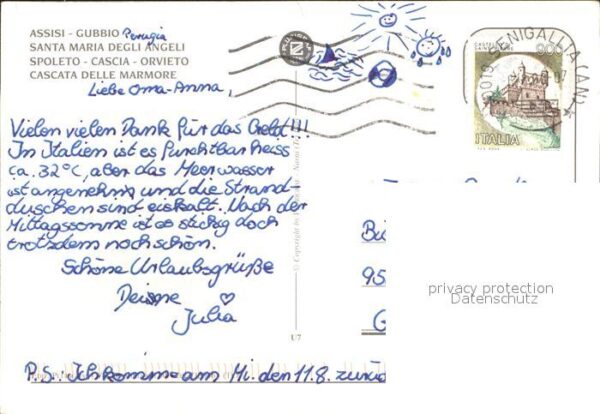 ASSISI - GUBBIO Perugia
SANTA MARIA DEGLI ANGELI
SPOLETO - CASCIA - ORVIETO
CASCATA DELLE MARMORE
Liebe Oma-Anna,
Vielen vielen Dank für das Geld!!!
In Italien ist es furchtbar heiss
ca. 32°C, aber das Meerwasser
ist angenehm und die Strand-
duschen sind eiskalt. Nach der
Mittagssonne ist es stickig doch
trotzdem noch schön.
Schöne Urlaubsgrüße
Deine
Julia
P.S. Ich komme am Mi. den 11.8. zurüc
SENIGALLIA (AN)
900
ITALIA
95
G
privacy protection
Datenschutz
© Copyright by
U7